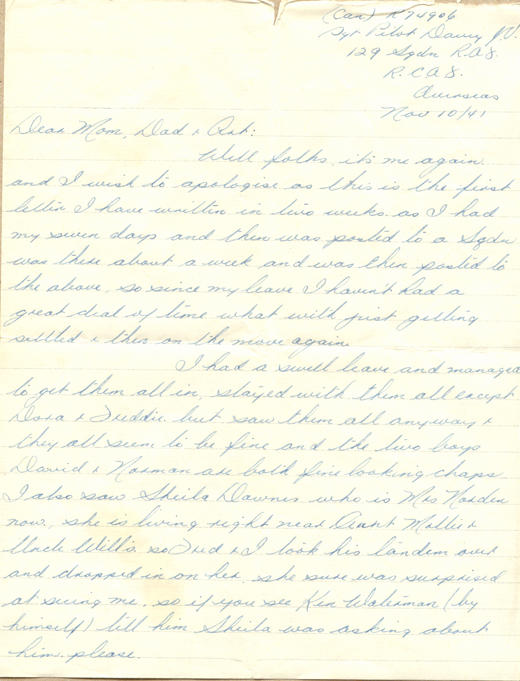 (Can) R74906
Sgt Pilot Davey J.V.
129 Sqdn R.A.F.
R.C.A.F.
Overseas
Nov 10/41
Dear Mom, Dad & Art:
Well folks, it's me again
and I wish to apologise as this is the first
letter I have written in two weeks. as I had
my seven days and then was posted to a Sqdn
was there about a week and was then posted to
the above, so since my leave I haven't had a
great deal of time what with just getting
settled & then on the move again
I had a swell leave and managed
to get them all in, stayed with them all except
Dora & Freddie but saw them all anyway &
they all seem to be fine and the two boys
David & Norman are both fine looking chaps.
I also saw Sheila Downes who is Mrs
now, she is living right near Aunt Mollie &
Uncle Will's so Fred & I took his tandem over
and dropped in on her, she sure was surprised
at seeing me, so if you see Ken Waterman (by
himself) tell him Sheila was asking about
him please.